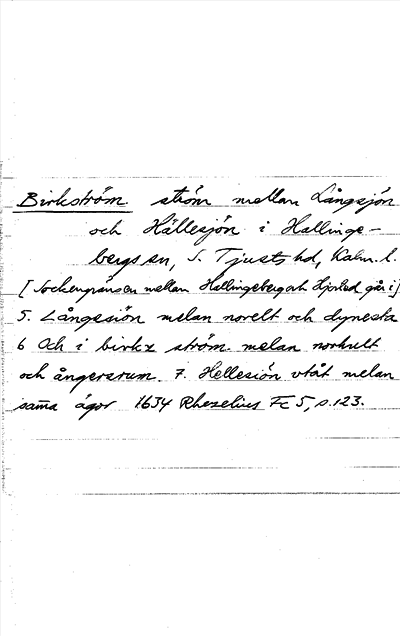 Birkström. ström mellan Långsjön
och Hällesjön i Hallinge-
bergs sn, S. Tjusts hd, Kalm. l.
[Sockengränsen mellan Hallingeberg och Hjorted går i]
5. Långesiön melan norelt och dynesta
6 Och i birkz ström. melan norhult
och ångersrum. 7. Hellesión vtåt melan
sam̄a ågor 1634 Rhezelius Fc 5, s. 123.